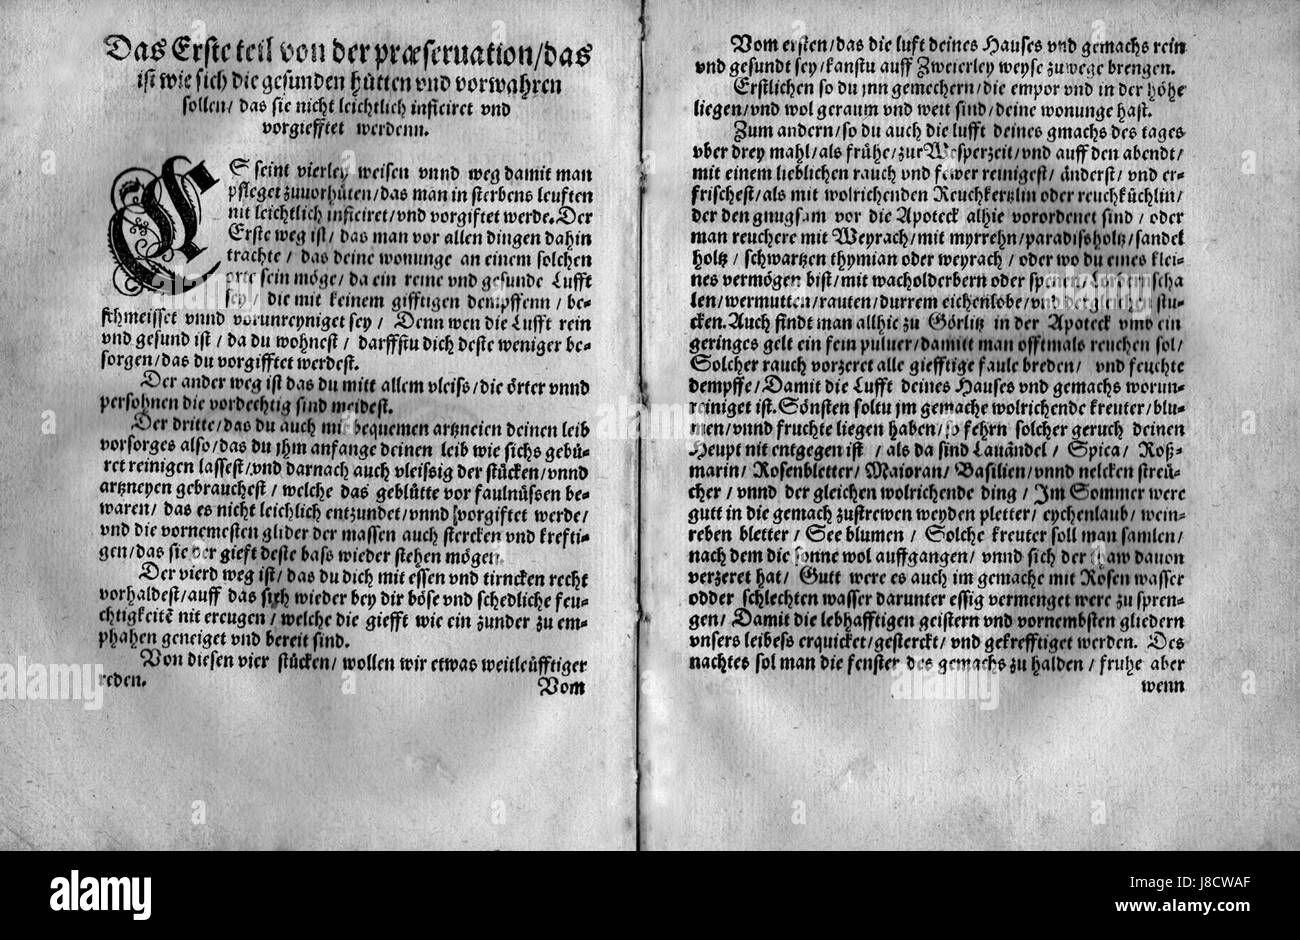 Das Erste teil von der præseruation/das
ist wie sich die gesunden hütten vnd vorwahren
sollen/ das sie nicht leichtlich inficiret vnd
vorgiefftet werdenn.
ES seint vierley weisen vnnd weg damit man
pfleget zuuorhüten/das man in sterbens leufften
nit leichtlich inficiret/vnd vorgiftet werde. Der
Erste weg ist/ das man vor allen dingen dahin
trachte/ das deine wonunge an einem solchen
orte sein möge/ da ein reine vnd gesunde Lufft
sey/ die mit keinem gifftigen dempffenn/ be-
schmeisset vnnd vorunreyniget sey/ Denn wen die Lufft rein
vnd gesund ist/ da du wohnest/ darffstu dich deste weniger be-
sorgen/das du vorgifftet werdest.
Der ander weg ist das du mitt allem vleiss/die örter vnnd
persohnen die vordechtig sind meidest.
Der dritte/das du auch mit bequemen artzneien deinen leib
vorsorges also/das du jhm anfange deinen leib wie sichs gebü-
ret reinigen lassest/vnd darnach auch vleissig der stücken/vnnd
artzneyen gebrauchest/ welche das geblütte vor faulnüssen be-
waren/ das es nicht leichlich entzundet/vnnd vorgiftet werde/
vnd die vornemesten glider der massen auch stercken vnd krefti-
gen/das sie der gieft deste bass wieder stehen mögen
Der vierd weg ist/ das du dich mit essen vnd tirncken recht
vorhaldest/auff das sich wieder bey dir böse vnd schedliche feu-
chtigkeitē nit ereugen/ welche die giefft wie ein zunder zu em-
phahen geneiget vnd bereit sind.
Von diesen vier stücken/ wollen wir etwas weitleüfftiger
reden.
Vom
Vom ersten/das die luft deines Hauses vnd gemachs rein
vnd gesundt sey/kanstu auff Zweierley weyse zuwege brengen.
Erstlichen so du jnn gemechern/die empor vnd in der höhe
liegen/vnd wol geraum vnd weit sind/deine wonunge hast.
Zum andern/so du auch die lufft deines gmachs des tages
vber drey mahl/als frühe/zur Wesperzeit/vnd auff den abendt/
mit einem lieblichen rauch vnd fewer reinigest/ änderst/ vnd er-
frischest/als mit wolrichenden Reuchkertzlin oder reuchküchlin/
der den gnugsam vor die Apoteck alhie vorordenet sind/ oder
man reuchere mit Weyrach/mit myrrehn/paradissholtz/sandel
holtz/ schwartzen thymian oder weyrach/ oder wo du eines klei-
nes vermögen bist/mit wacholderbern oder spenen/ schа
len/wermutten/rauten/durrem eichenlobe/vnd dergleichen stu-
cken. Auch findt man allhie zu Görlitz in der Apoteck vmb ein
geringes gelt ein fein puluer/damitt man offtmals reuchen sol/
Solcher rauch vorzeret alle giefftige faule breden/ vnd feuchte
dempffe/ Damit die Lufft deines Hauses vnd gemachs worun-
reiniget ist. Sönsten soltu jm gemache wolrichende kreuter/blu-
men/vnnd fruchte liegen haben/so fehrn solcher geruch deinen
Heupt nit entgegen ist/ als da sind Lauändel/ Spica/ Roß-
marin/ Rosenbletter/ Maioran/ Basilien/ vnnd nelcken streü-
cher/ vnnd der gleichen wolrichende ding/ Im Sommer were
gutt in die gemach zustrewen weyden pletter/ eychenlaub/ wein-
reben bletter/ See blumen/ Solche kreuter soll man samlen/
nach dem die sonne wol auffgangen/ vnnd sich der thaw dauon
verzeret hat/ Gutt were es auch im gemache mit Rosen wasser
odder schlechten wasser darunter essig vermenget were zu spren-
gen/ Damit die lebhafftigen geistern vnd vornembsten gliedern
vnsers leibess erquicket/gesterckt/ vnd gekrefftiget werden. Des
nachtes sol man die fenster des gemachs zu halden/ fruhe aber
wenn
alamy
Image ID: J8CWAF
www.alamy.com